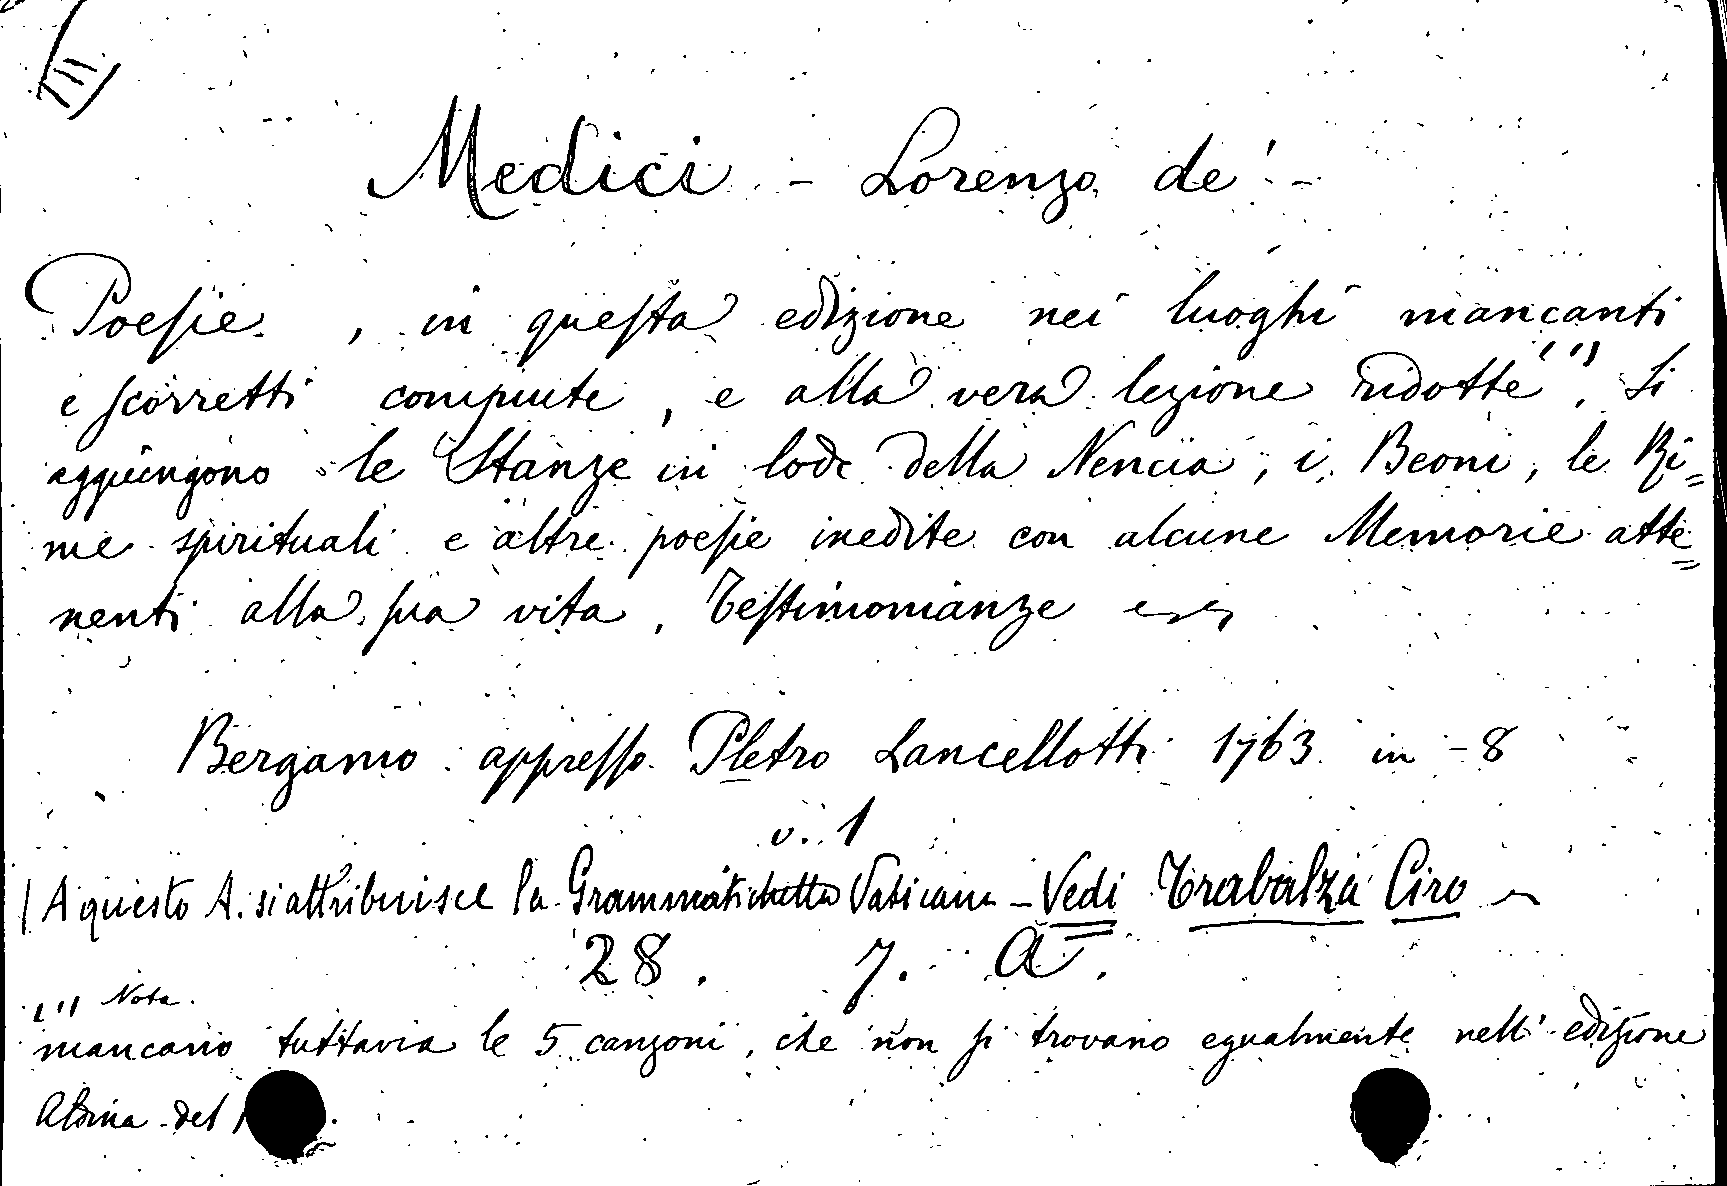 Medici - Lorenzo de' -
Poesie, in questa edizione nei luoghi mancanti
e scorretti compiute, e alla vera lezione ridotte (1). Si
aggiungono le Stanze in lode della Nencia, i Beoni, le Ri=
me spirituali e altre poesie inedite con alcune Memorie atte=
nenti alla sua vita, Testimonianze
Bergamo appresso Pietro Lancellotti 1763 in -8
v. 1
A questo A. si attribuisce la Grammatichetta Vaticana - Vedi Trabalza Ciro
28. 7. a.
(1) Nota.
mancano tuttavia le 5 canzoni, che non si trovano egualmente nell'edizione
Aldina del